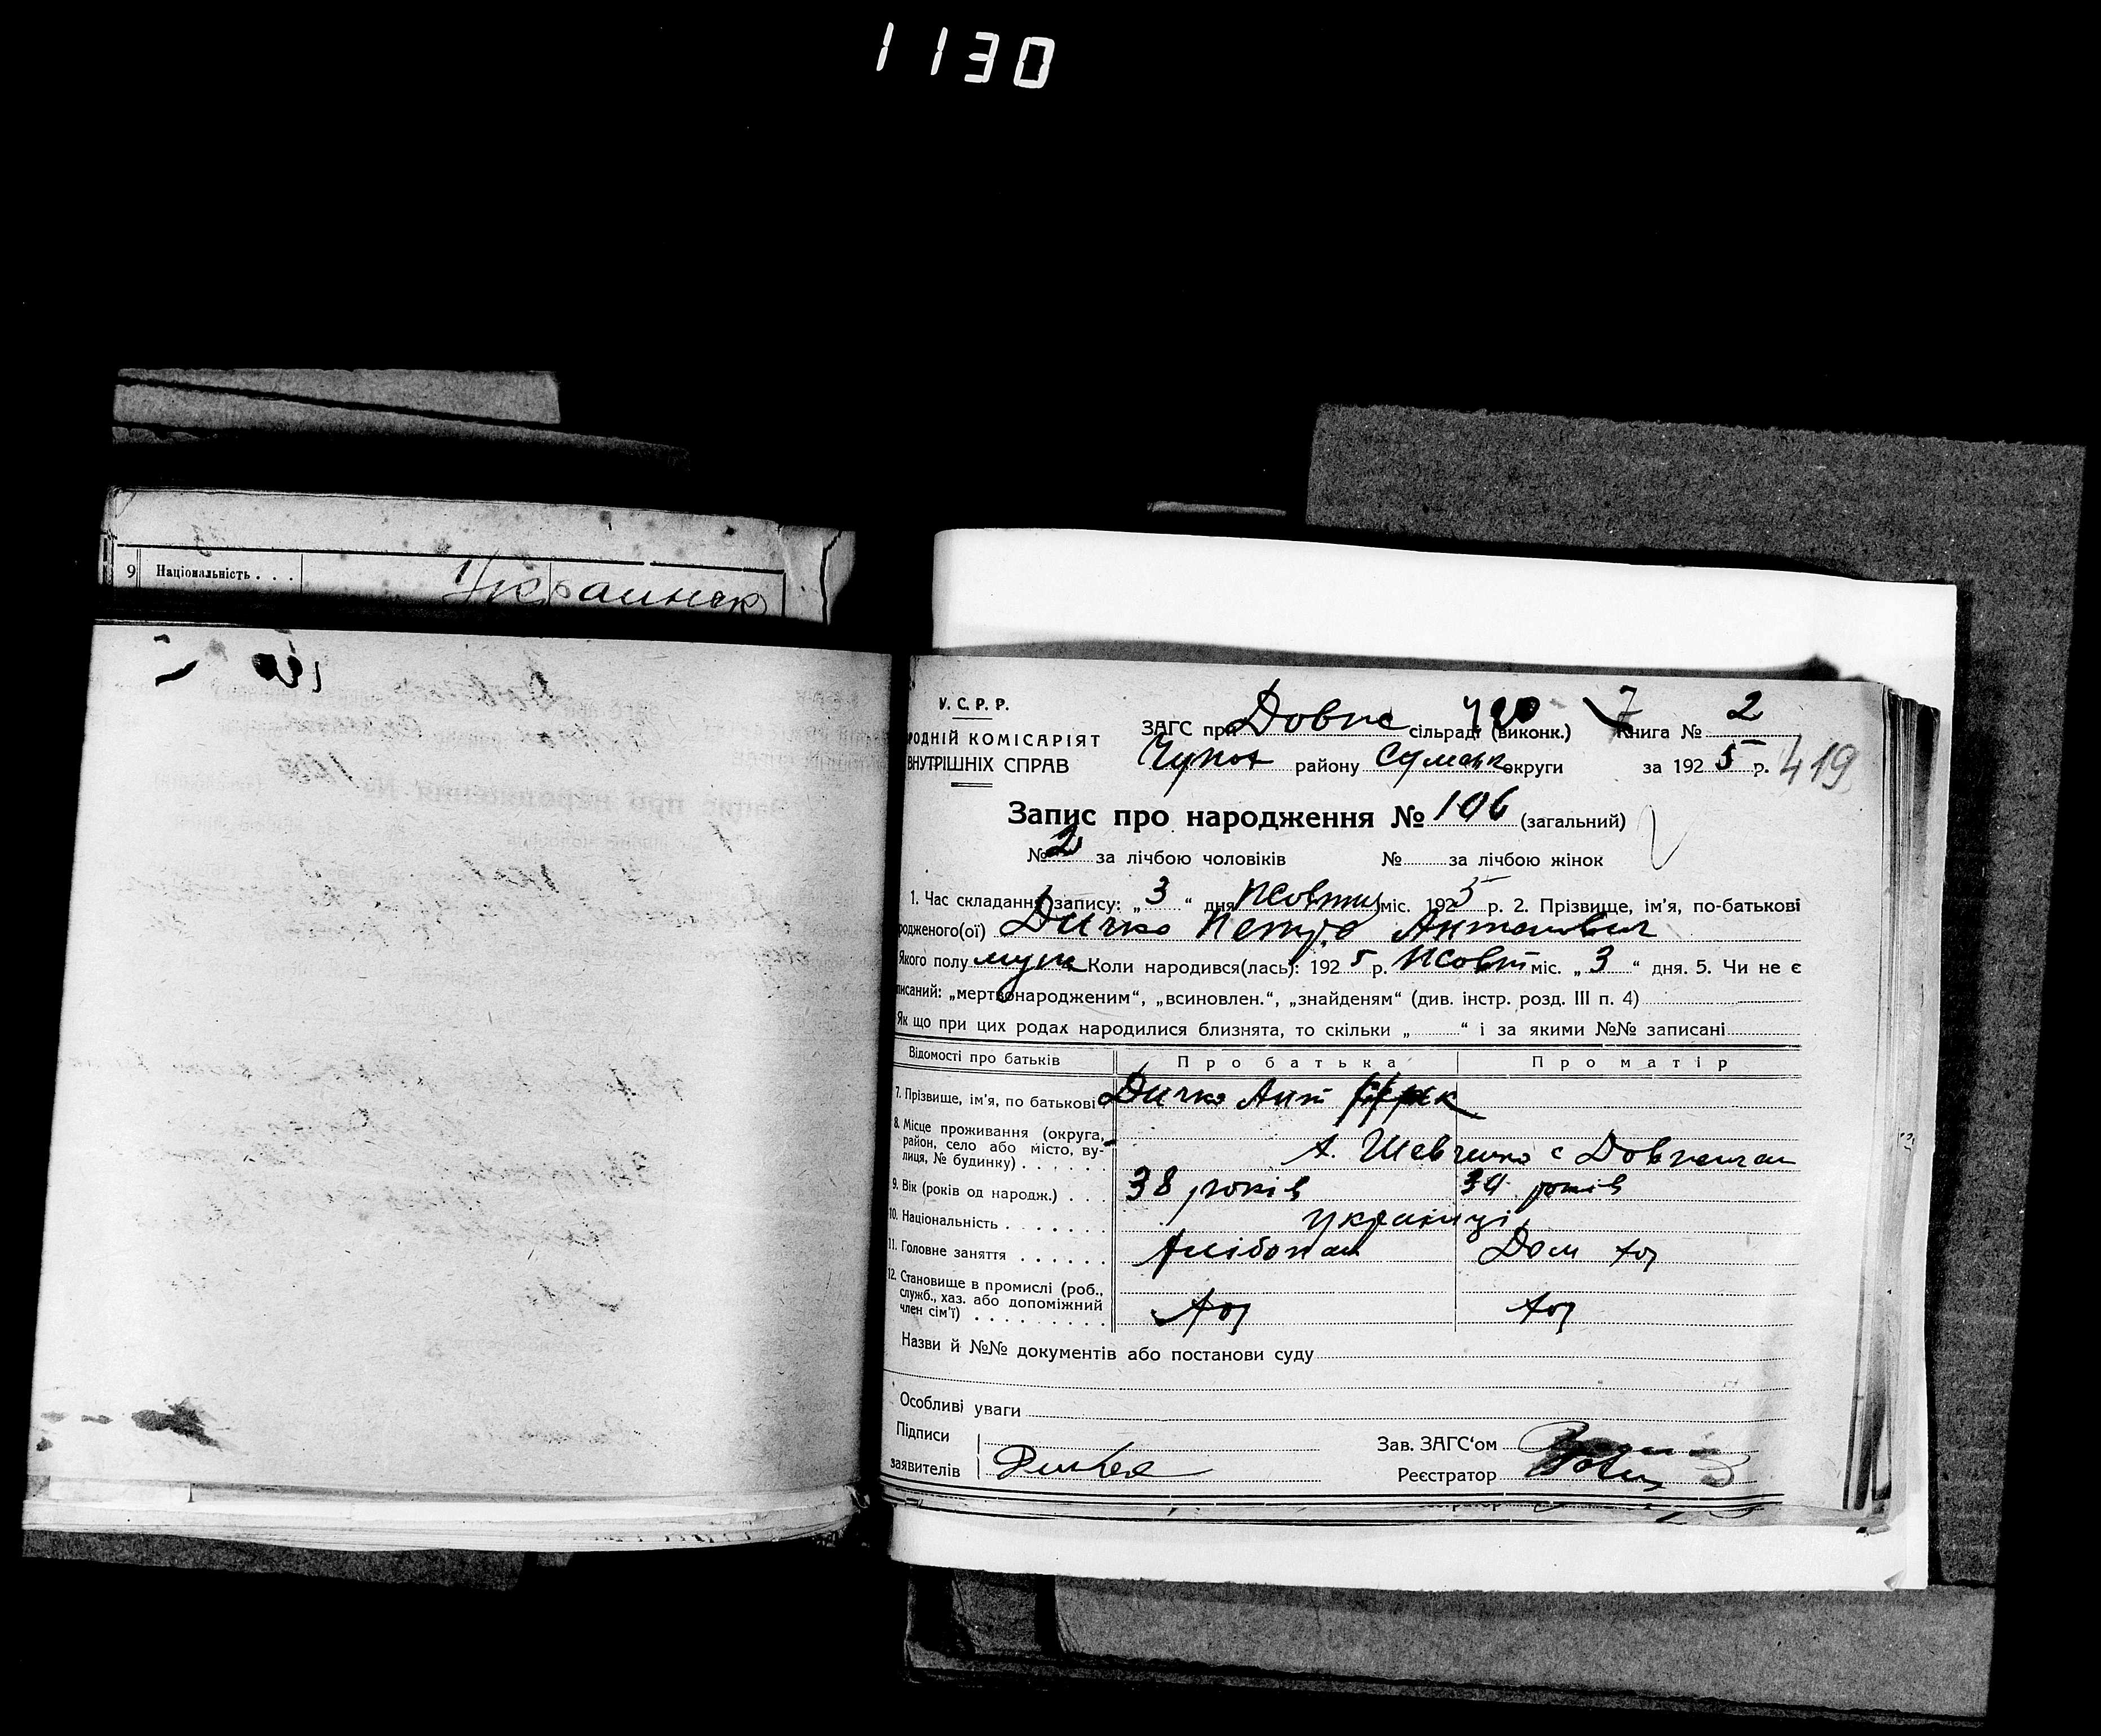 1130
9 Національність . . .
Украинск
У.С.Р.Р.
РОДНІЙ КОМІСАРІЯТ
ВНУТРІШНІХ СПРАВ
ЗАГС при Довпс сільраді (виконк.) Книга № 2
район­у Сумськ округи за 1925 р. 419
Запис про народження № 106 (загальний)
№ 2 за лічбою чоловіків № за лічбою жінок
1. Час складання запису: „3“ дня Жовтн міс. 1925 р. 2. Прізвище, ім'я, по-батькові
родженого(ої) Дичко Петро Антонович
Якого полу муж Коли народився(лась): 1925 р. Жовт міс. „3“ дня. 5. Чи не є
писаний: „мертвонародженим“, „всиновлен.“, „знайденям“ (див. інстр. розд. III п. 4)
Як що при цих родах народилися близнята, то скільки „ “ і за якими №№ записані
Відомості про батьків Про батька Про матір
7. Прізвище, ім'я, по батькові Дичко Ант
8. Місце проживання (округа,
район, село або місто, ву-
лиця, № будинку) . . . . . .
х. Шевченко с
9. Вік (років од народж.) . . . 38 років 34 років
10. Національність . . . . . . . українці
11. Головне заняття . . . . . . хлібопаш Дом хоз
12. Становище в промислі (роб.,
служб., хаз. або допоміжний
член сім'ї) . . . . . . . . . хоз хоз
Назви й №№ документів або постанови суду
Особливі уваги
Підписи
Зав. ЗАГС'ом
заявителів
Реєстратор